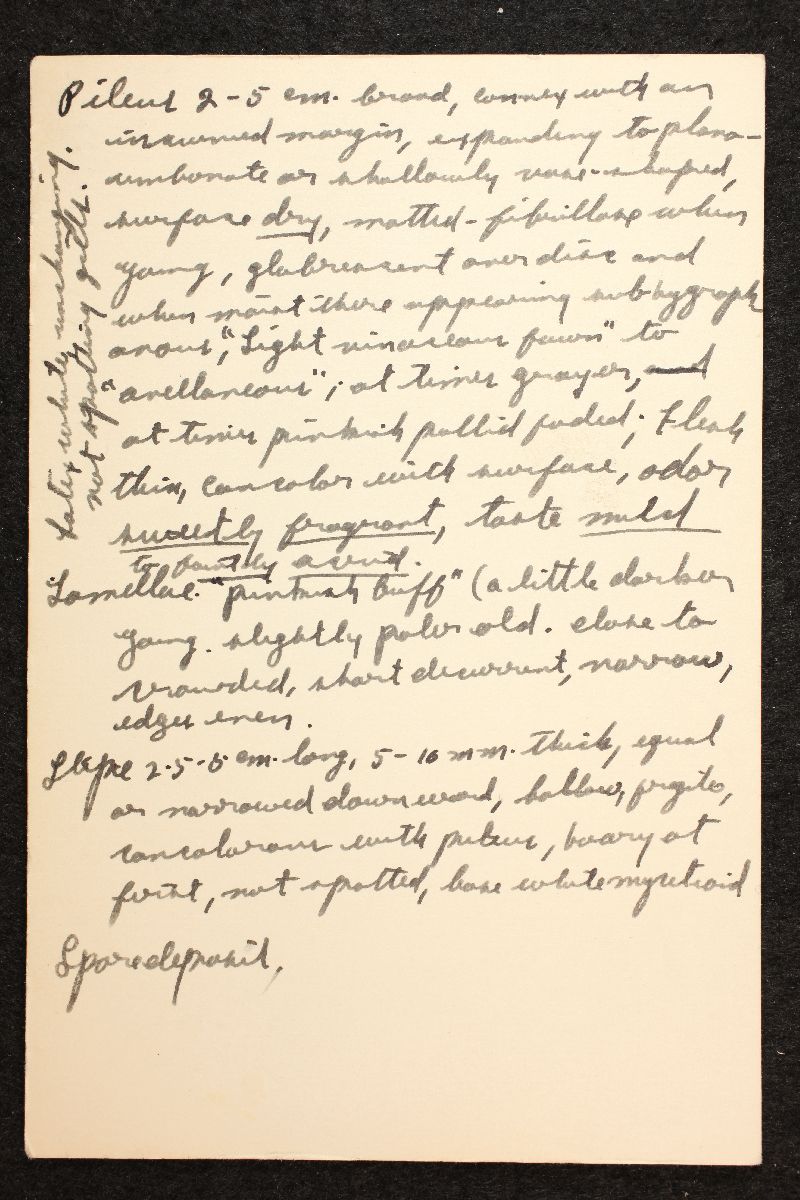 Pileus 2-5 cm. broad, convex with an
incurved margin, expanding to plano-
umbonate or shallowly vase-shaped,
surface dry, matted-fibrillose when
young, glabrescent over disc and
when moist there appearing subhygroph
anous, "Light vinaceous fawn" to
"avellaneous"; at times grayer, and
at times pinkish pallid faded; Flesh
thin, concolor with surface, odor
sweetly fragrant, taste mild
to faintly acrid.
Lamellae "pinkish buff" (a little darker
young. slightly paler old. close to
crowded, short decurrent, narrow,
edges even.
Stipe 2.5-5 cm. long, 5-10 mm. thick, equal
or narrowed downward, hollow, fragile,
concolorous with pileus, hoary at
first, not spotted, base white mycelioid
Spore deposit,
Latex white, unchanging.
not spotting gills.